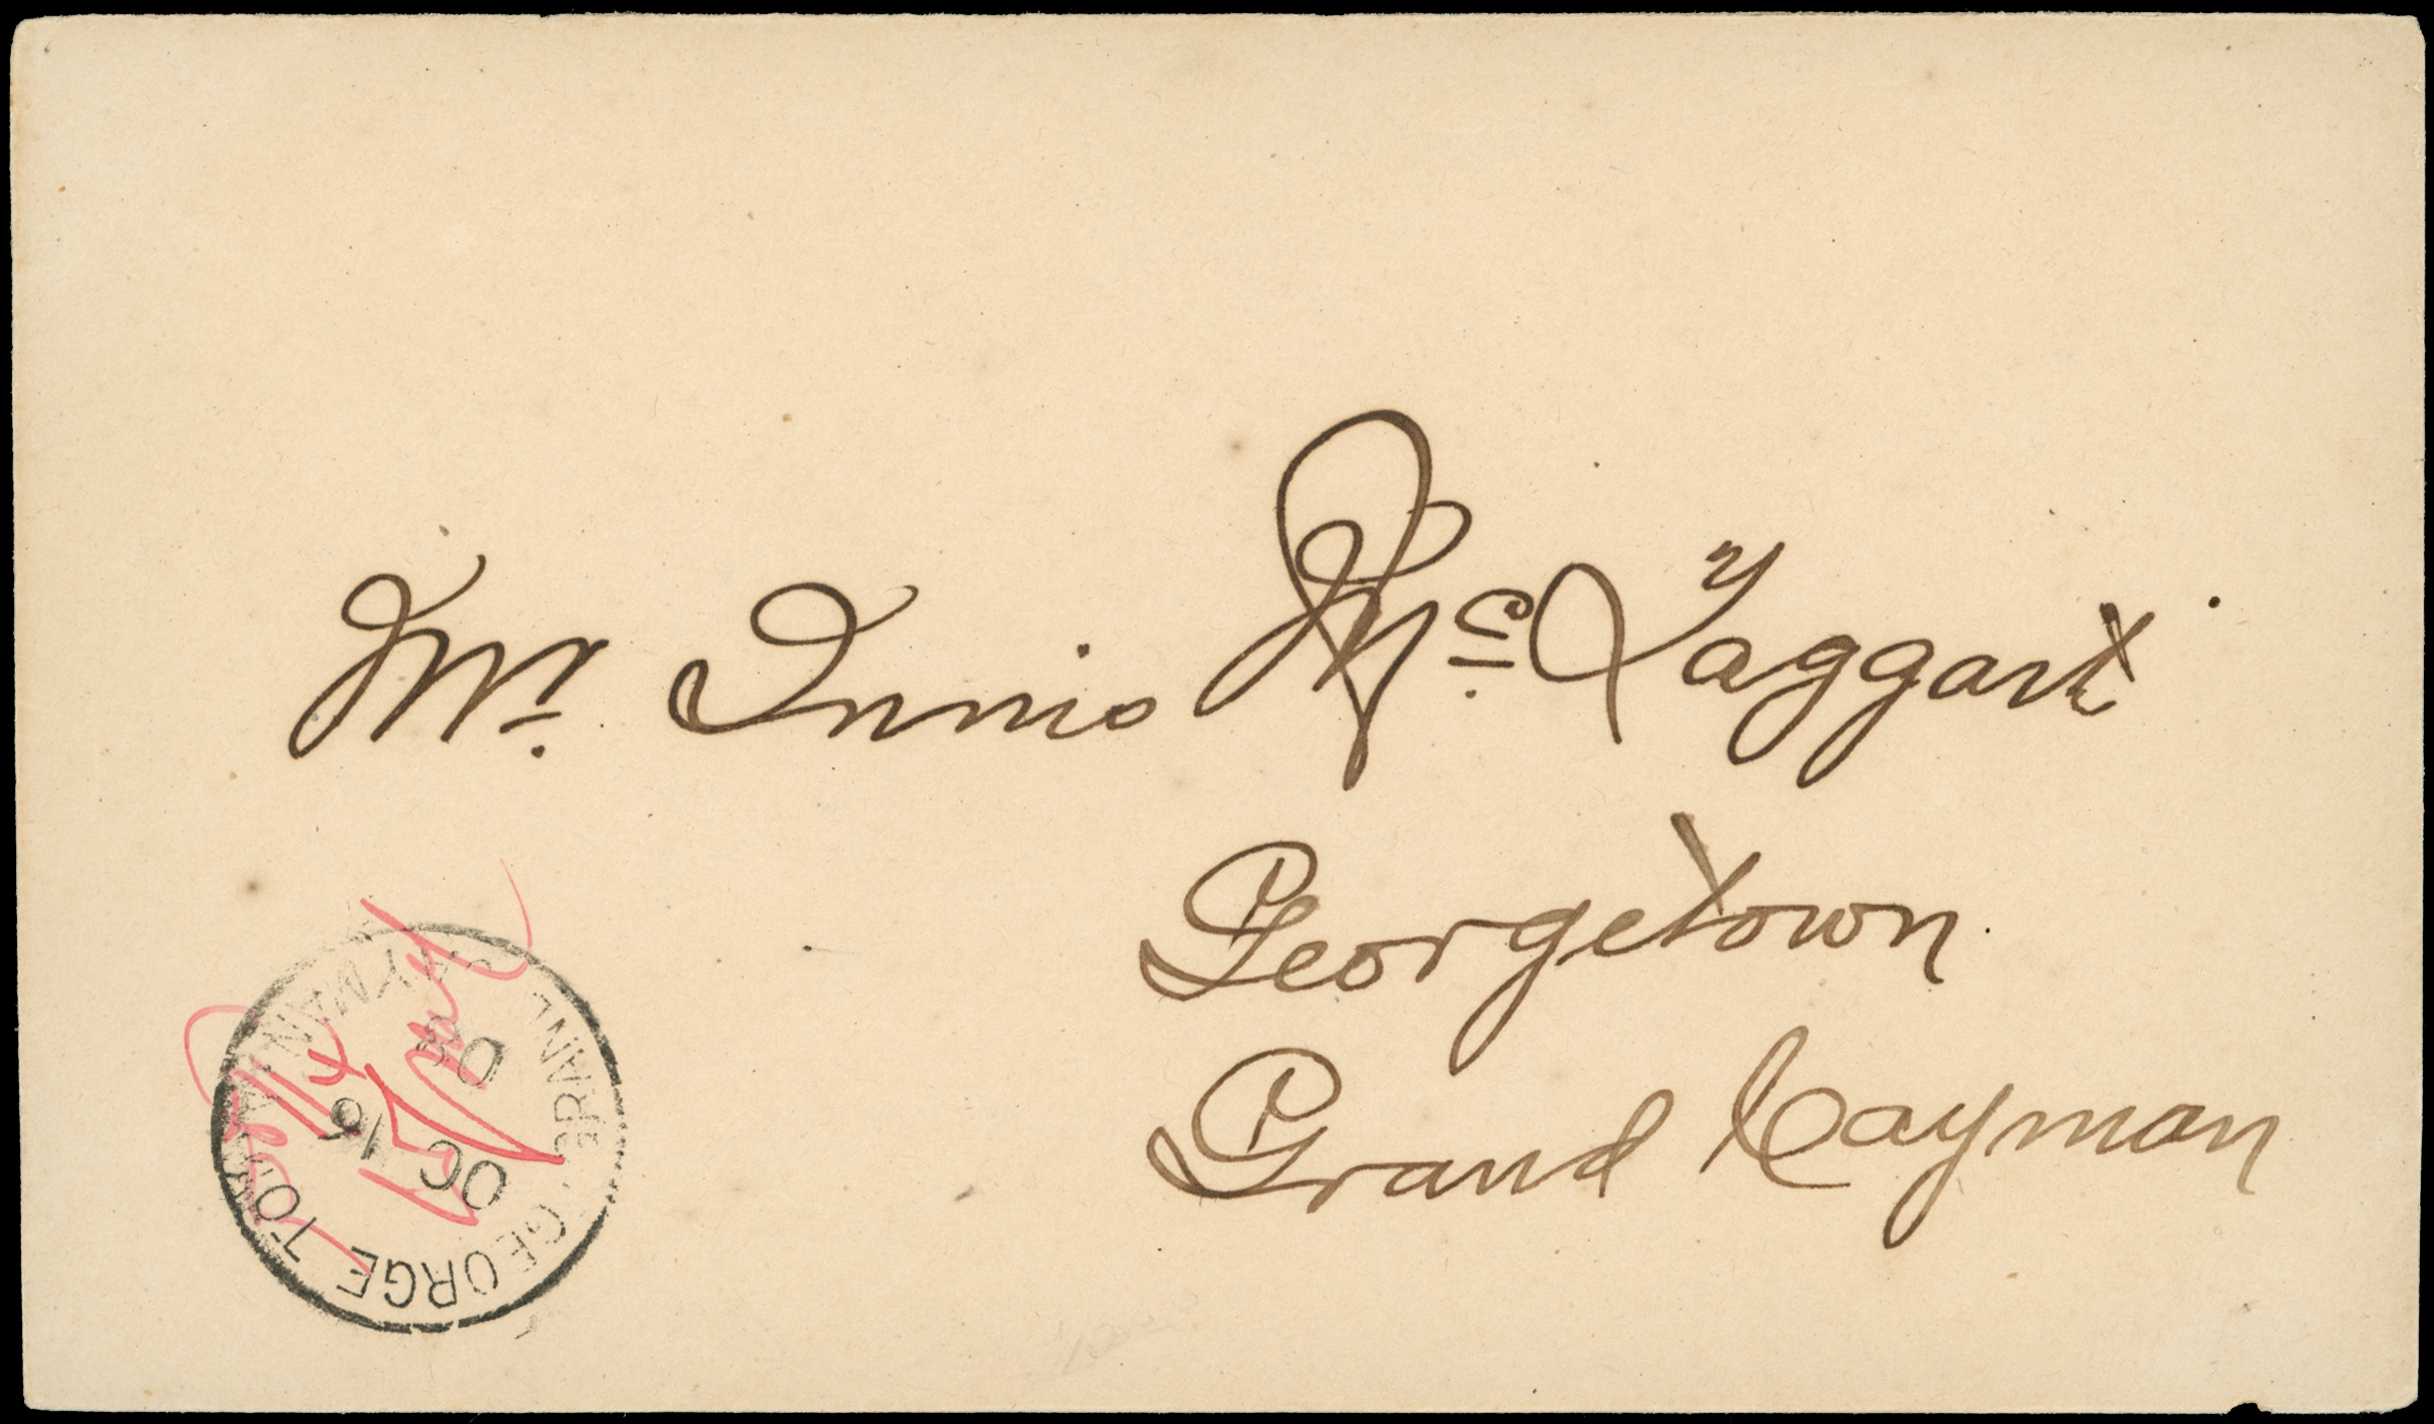 Mr. Innis McTaggart
Georgetown.
Grand Cayman
GEORGE TOWN
GRAND CAYMAN
D
OC 16